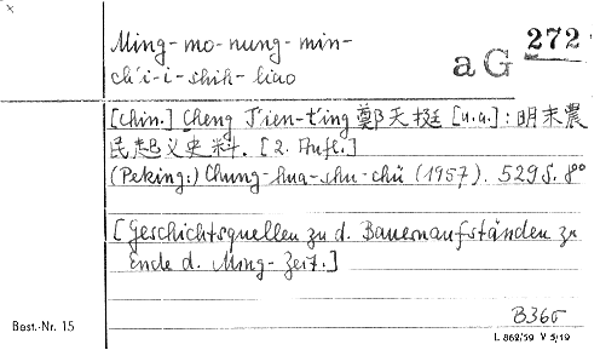 Ming-mo-nung-min-
ch'i-i-shih-liao
aG 272
[Chin.] Cheng T'ien-t'ing 鄭天挺 [u.a.]: 明末農
民起义史料. [2. Aufl.]
(Peking:) Chung-hua-shu-chü (1957). 529 S. 8°
[Geschichtsquellen zu d. Bauernaufständen zu
Ende d. Ming-Zeit.]
B366
Best.-Nr. 15
L 862/59 V 5/19